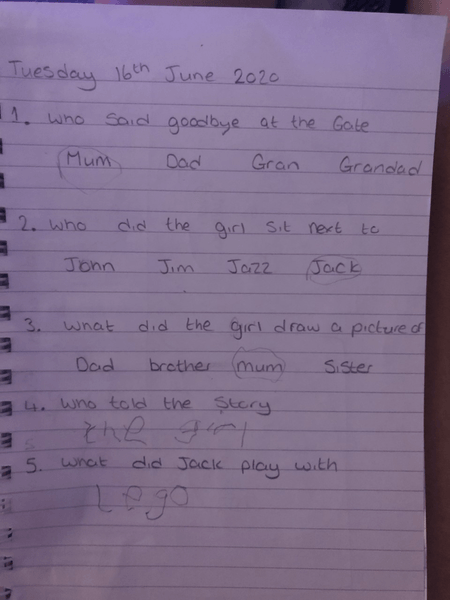 Tuesday 16th June 2020
1. Who said goodbye at the Gate
Mum Dad Gran Grandad
2. Who did the girl sit next to
John Jim Jazz Jack
3. What did the girl draw a picture of
Dad brother mum Sister
4. Who told the Story
the girl
5. What did Jack play with
Lego